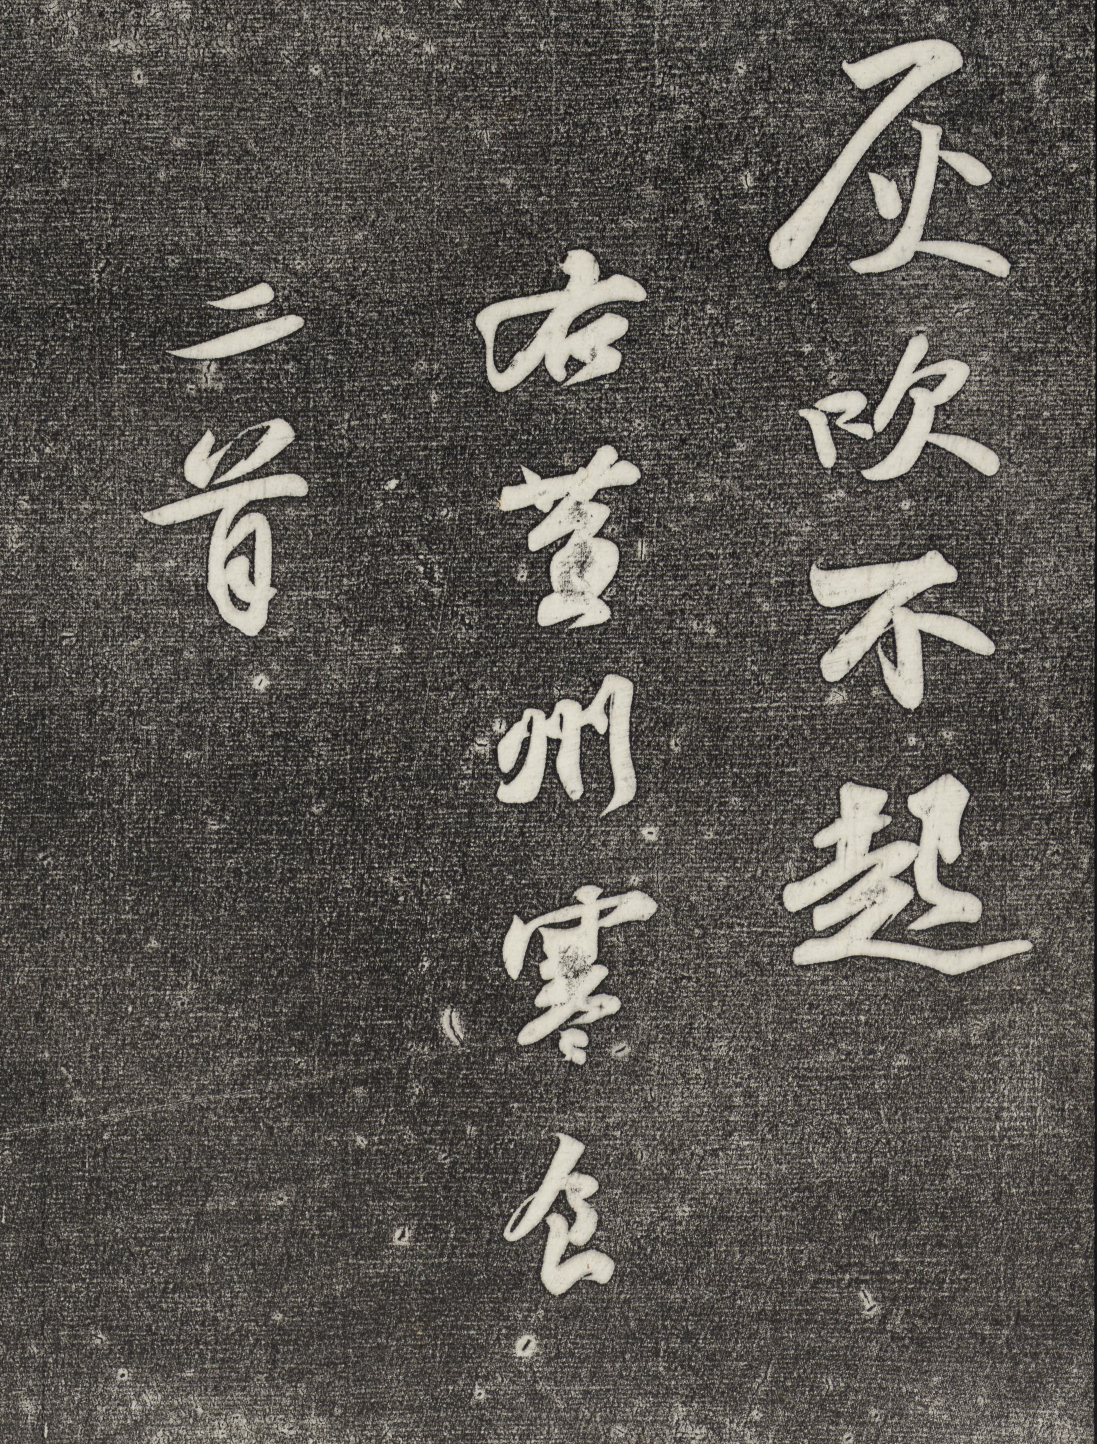 灰吹不起
右黄州寒食
二首